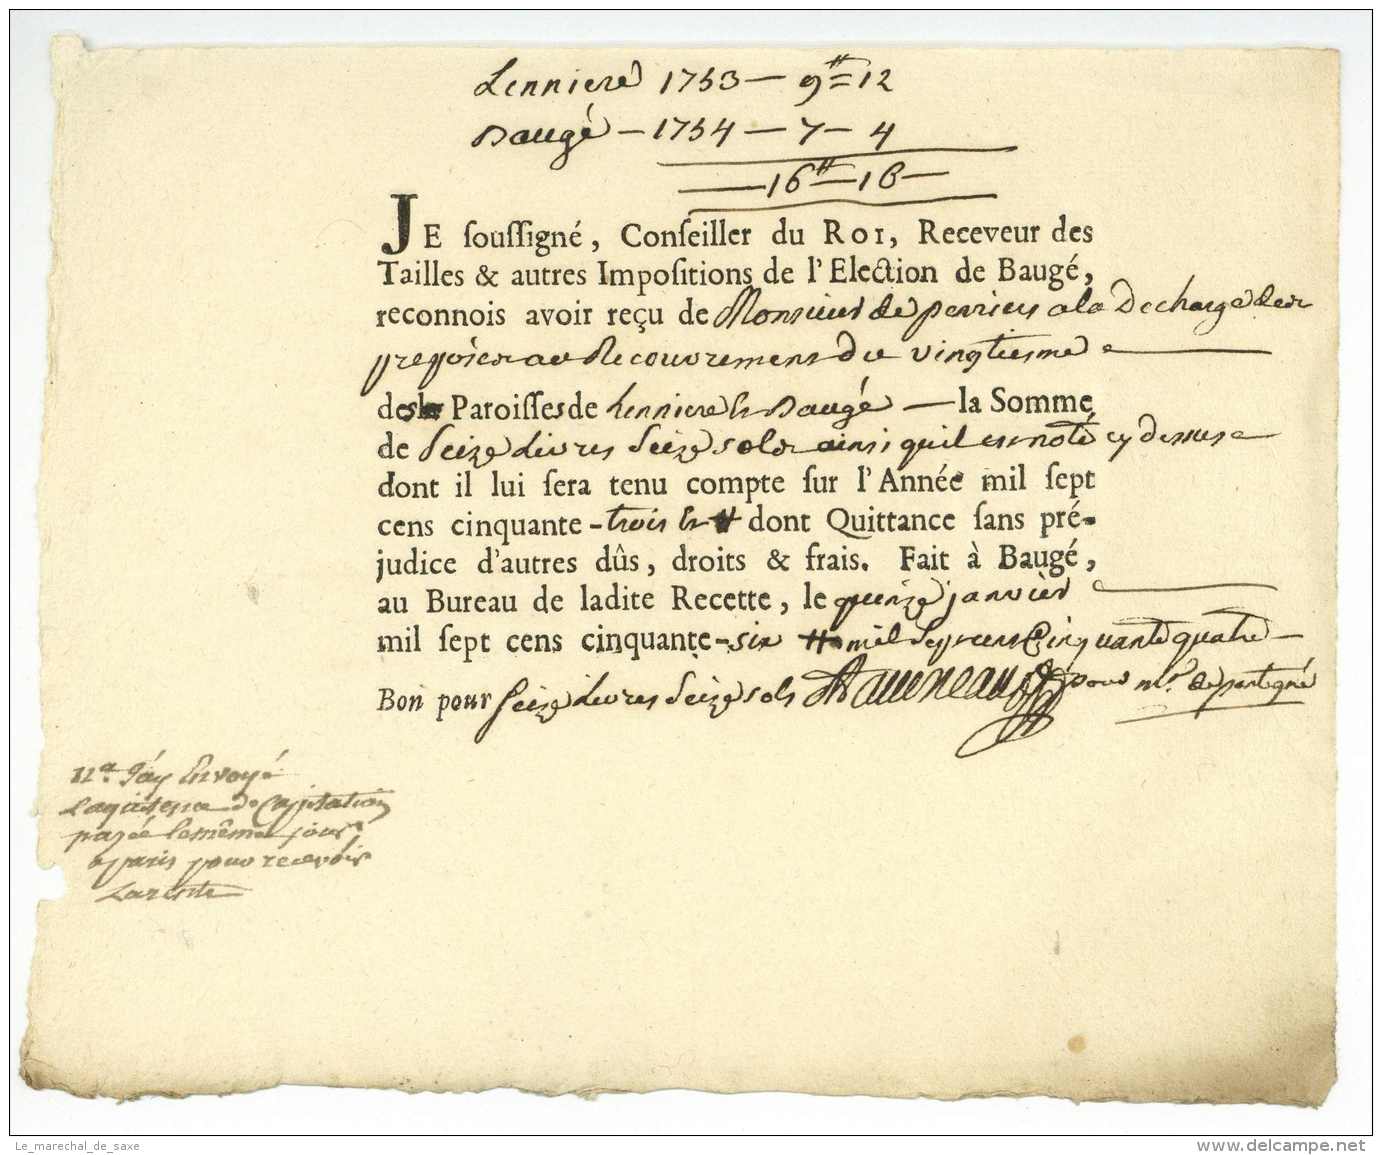 Lenniere 1753 — 9ᵗᵗ = 12
Baugé — 1754 — 7 — 4
— 16ᵗᵗ — 16 —
JE ſouſſigné, Conſeiller du ROI, Receveur des
Tailles & autres Impoſitions de l'Election de Baugé,
reconnois avoir reçu de Monsieur de perriers a la Decharge des
preposés au Recouvrement Du vingtiesme
des Paroiſſes de Lenniere & Baugé — la Somme
de Seize Livres Seize sols ainsi quil est noté cy dessus
dont il lui ſera tenu compte ſur l'Année mil ſept
cens cinquante-trois & 4 dont Quittance ſans pré-
judice d'autres dûs, droits & frais. Fait à Baugé,
au Bureau de ladite Recette, le quinze janvier
mil ſept cens cinquante-six mil Sept cens Cinquante quatre —
Bon pour Seize Livres Seize sols pour Mr. de partigné
Jay Envoyé
La quitence de Capitation
payée le même jour
a paris pour recevoir
La reste
Le_marechal_de_saxe
www.delcampe.net